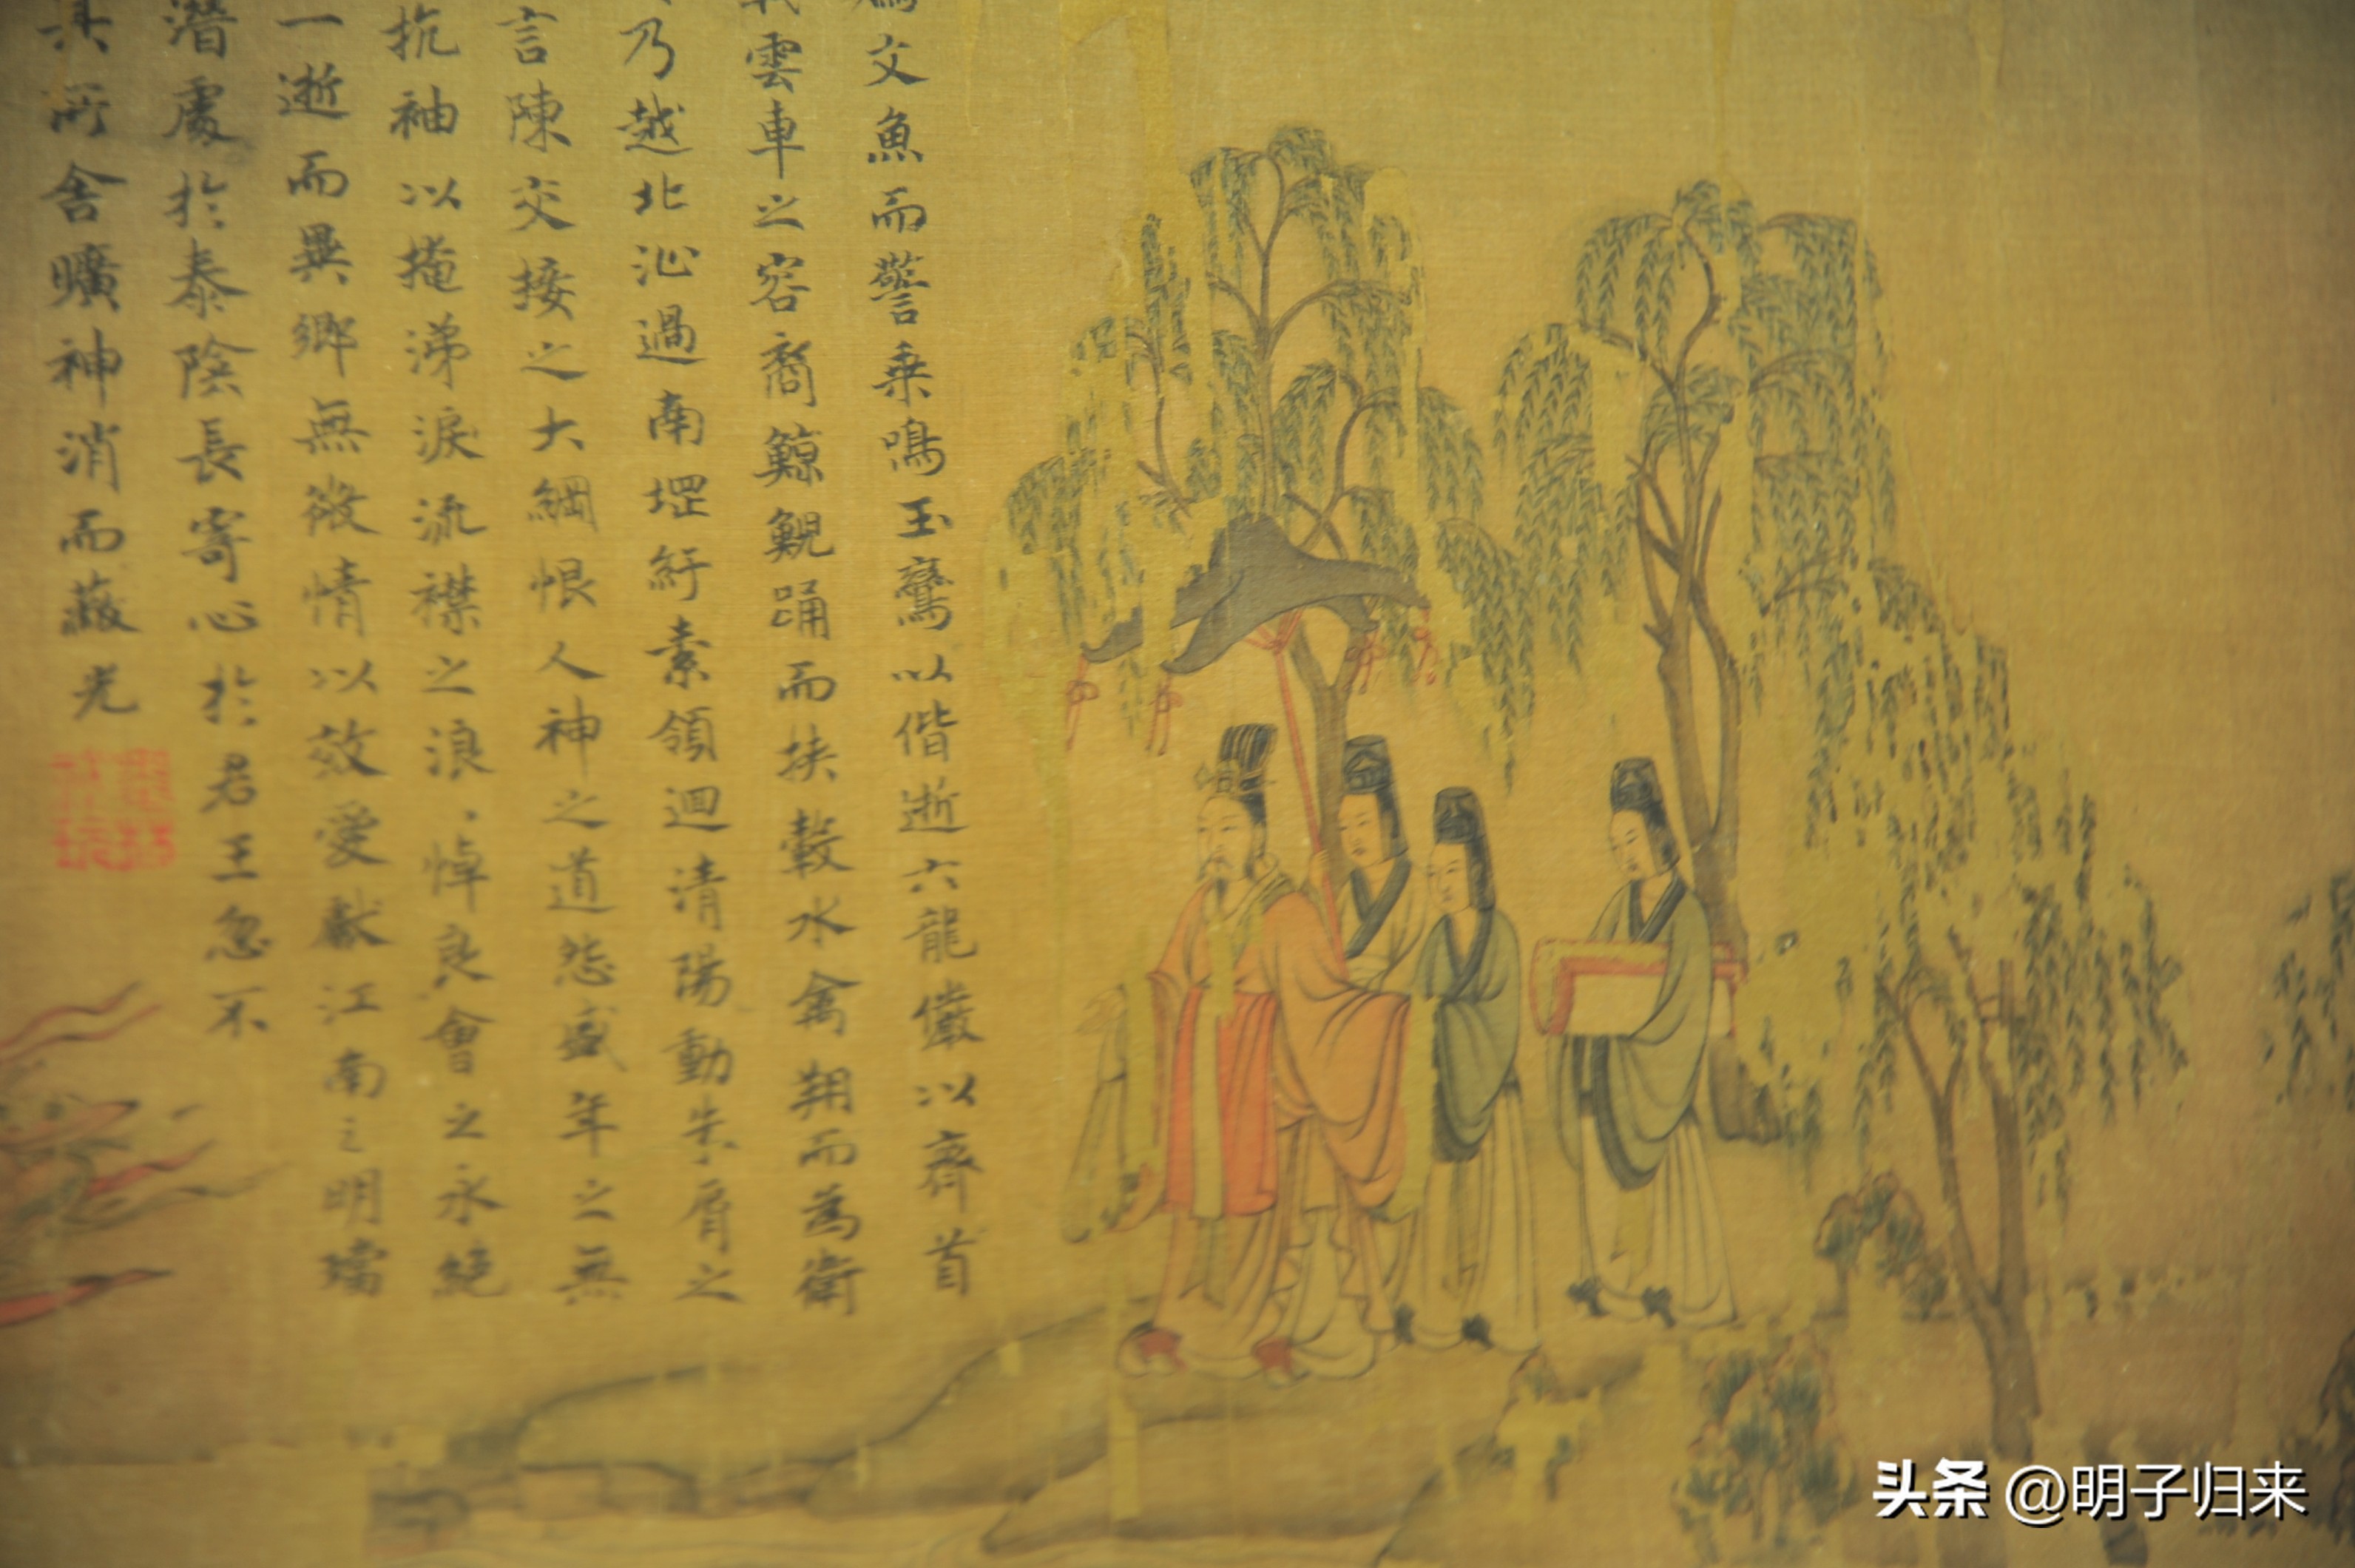 文魚而警乗鳴玉鸞以偕逝六龍儼以齊首
雲車之容裔鯨鯢踊而挾轂水禽翔而為衛
乃越北沚過南堽紆素領迴清陽動朱脣之
言陳交接之大綱恨人神之道怨盛年之無
抗袖以掩涕淚流襟之浪、悼良會之永絕
一逝而異鄉無微情以效愛獻江南之明璫
潛處於泰陰長寄心於君王忽不
其所舍曠神消而蔽光
头条 @明子归来